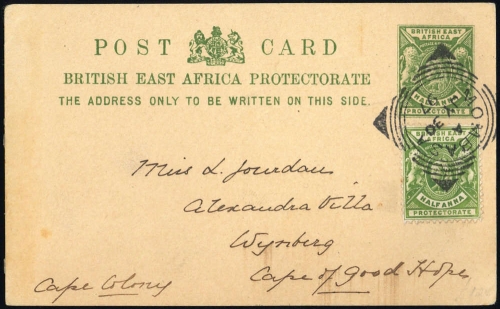 POST CARD
BRITISH EAST AFRICA PROTECTORATE
THE ADDRESS ONLY TO BE WRITTEN ON THIS SIDE.
BRITISH EAST AFRICA
HALF ANNA
PROTECTORATE
HALF ANNA
PROTECTORATE
Miss L. Jourdan
Alexandra Villa
Wynberg
Cape of Good Hope
Cape Colony